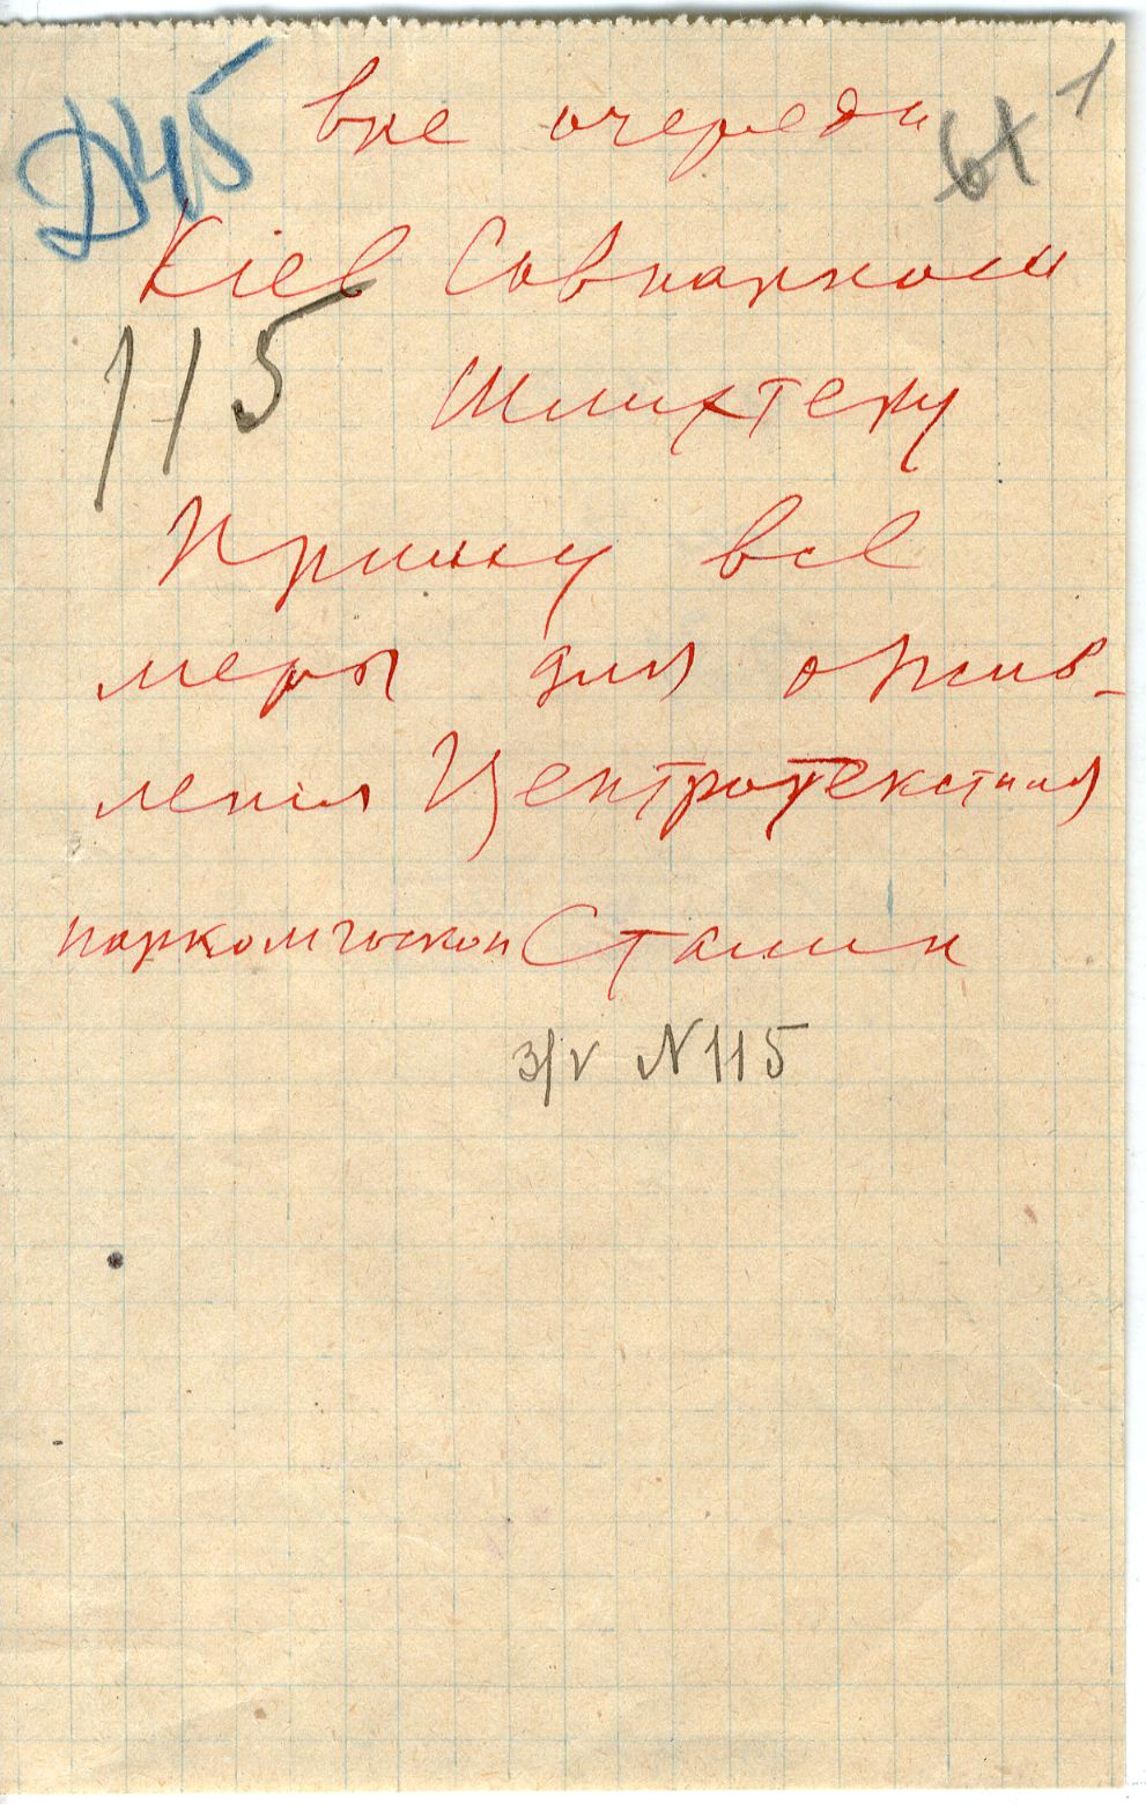 Д45
вне очереди
61 1
Кiев Совнарком
115
Шлихтеру
Приму все
меры для ожив-
ления Центротекстиля
наркомгоскон Сталин
3/V N 115